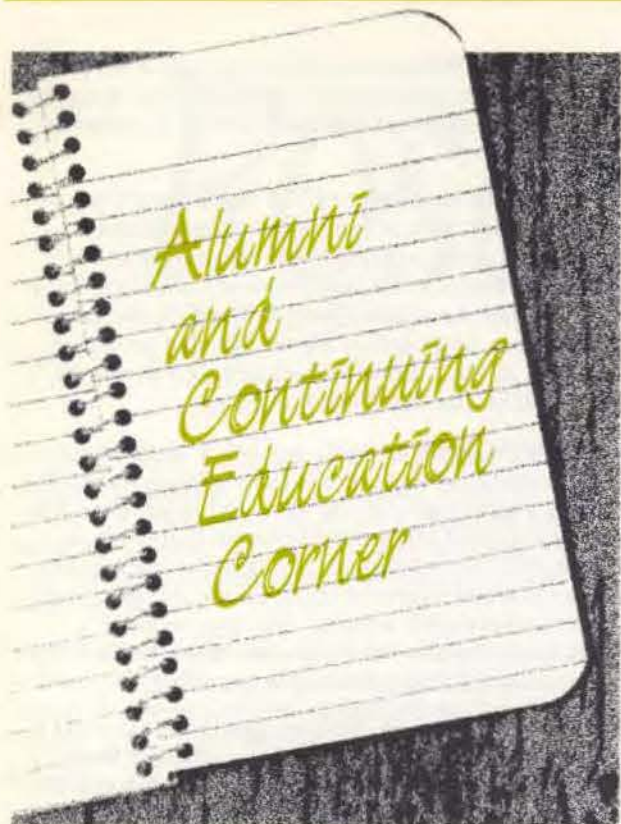 Alumni
and
Continuing
Education
Corner